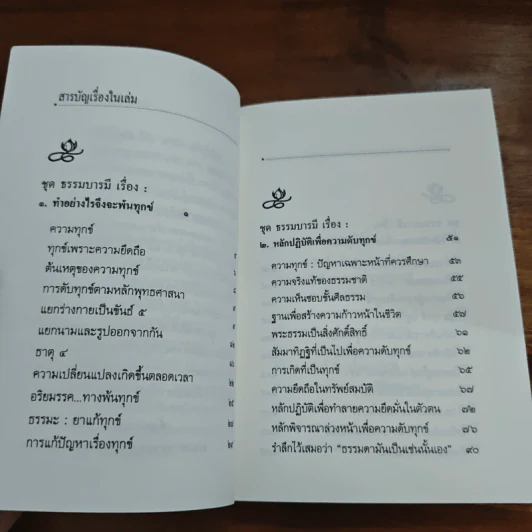 สารบัญเรื่องในเล่ม
ชุด ธรรมบารมี เรื่อง :
๑. ทำอย่างไรจึงจะพ้นทุกข์ ๑
ความทุกข์
ทุกข์เพราะความยึดถือ
ต้นเหตุของความทุกข์
การดับทุกข์ตามหลักพุทธศาสนา
แยกร่างกายเป็นขันธ์ ๕
แยกนามและรูปออกจากกัน
ธาตุ ๔
ความเปลี่ยนแปลงเกิดขึ้นตลอดเวลา
อริยมรรค...ทางพ้นทุกข์
ธรรมะ : ยาแก้ทุกข์
การแก้ปัญหาเรื่องทุกข์
ชุด ธรรมบารมี เรื่อง :
๒. หลักปฏิบัติเพื่อความดับทุกข์ ๕๑
ความทุกข์ : ปัญหาเฉพาะหน้าที่ควรศึกษา ๕๓
ความจริงแท้ของธรรมชาติ ๕๕
ความเห็นชอบขั้นศีลธรรม ๕๖
ฐานเพื่อสร้างความก้าวหน้าในชีวิต ๕๗
พระธรรมเป็นสิ่งศักดิ์สิทธิ์ ๖๑
สัมมาทิฏฐิที่เป็นไปเพื่อความดับทุกข์ ๖๒
การเกิดที่เป็นทุกข์ ๖๕
ความยึดถือในทรัพย์สมบัติ ๖๗
หลักปฏิบัติเพื่อทำลายความยึดมั่นในตัวตน ๗๒
หลักพิจารณาล่วงหน้าเพื่อความดับทุกข์ ๗๖
รำลึกไว้เสมอว่า “ธรรมดามันเป็นเช่นนั้นเอง” ๙๐